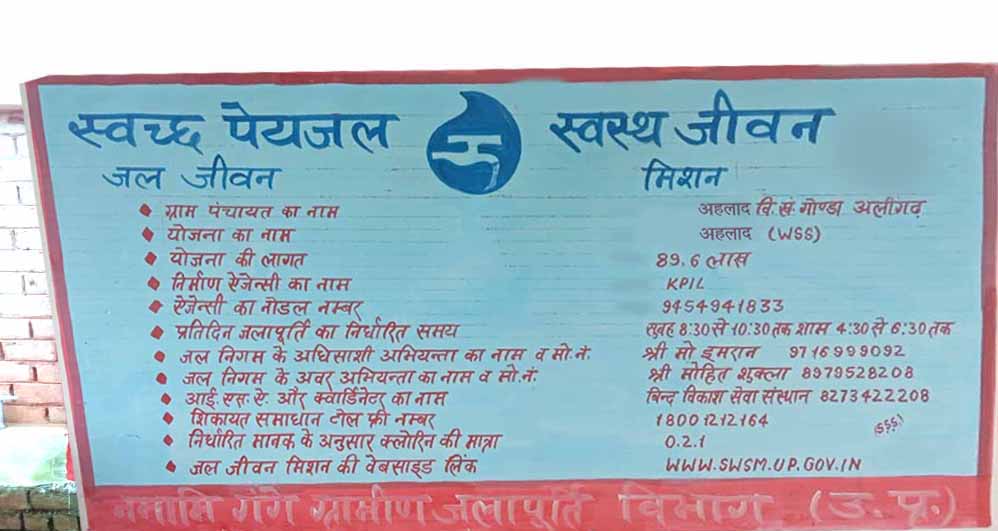 स्वच्छ पेयजल स्वस्थ जीवन
जल जीवन मिशन
ग्राम पंचायत का नाम अहलाद वि.खं. गोण्डा अलीगढ़
योजना का नाम अहलाद (WSS)
योजना की लागत 89.6 लास
निर्माण ऐजेन्सी का नाम KPIL
ऐजेन्सी का नोडल नम्बर 9454941833
प्रतिदिन जलापूर्ति का निर्धारित समय सुवह 8:30 से 10:30 तक शाम 4:30 से 6:30 तक
जल निगम के अधिसाशी अभियन्ता का नाम व मो.नं. श्री मो इमरान 9716999092
जल निगम के अवर अभियन्ता का नाम व मो.नं. श्री मोहित शुक्ला 8979528208
आई.एस.ऐ. और क्वार्डिनेटर का नाम बिन्द विकाश सेवा संस्थान 8273422208
शिकायत समाधान टोल फ्री नम्बर 18001212164 (SSS)
निर्धारित मानक के अनुसार क्लोरिन की मात्रा 0.2.1
जल जीवन मिशन की वेबसाइड लिंक WWW.SWSM.UP.GOV.IN
नमामि गंगे ग्रामीण जलापूर्ति विभाग (उ.प्र.)